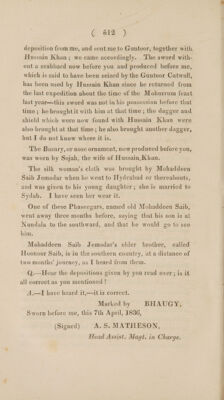 ( 512 )
deposition from me, and sent me to Guntoor, together with
Hussain Khan; we came accordingly. The sword with-
out a scabbard now before you and produced before me,
which is said to have been seized by the Guntoor Cutwall,
has been used by Hussain Khan since he returned from
the last expedition about the time of the Mohurrum feast
last year—this sword was not in his possession before that
time; he brought it with him at that time; the dagger and
shield which were now found with Hussain Khan were
also brought at that time; he also brought another dagger,
but I do not know where it is.
The Basury, or nose ornament, now produced before you,
was worn by Sojah, the wife of Hussain Khan.
The silk woman's cloth was brought by Mohadeen
Saib Jemodar when he went to Hydrabad or thereabouts,
and was given to his young daughter; she is married to
Sydah. I have seen her wear it.
One of these Phansegars, named old Mohaddeen Saib,
went away three months before, saying that his son is at
Nundala to the southward, and that he would go to see
him.
Mohaddeen Saib Jemodar's elder brother, called
Homour Saib, is in the southern country, at a distance of
two months' journey, as I heard from them.
Q.—Hear the depositions given by you read over; is it
all correct as you mentioned?
A.—I have heard it,—it is correct.
Marked by BHAUGY,
Sworn before me, this 7th April, 1836,
(Signed) A. S. MATHESON,
Head Assist. Magt. in Charge.